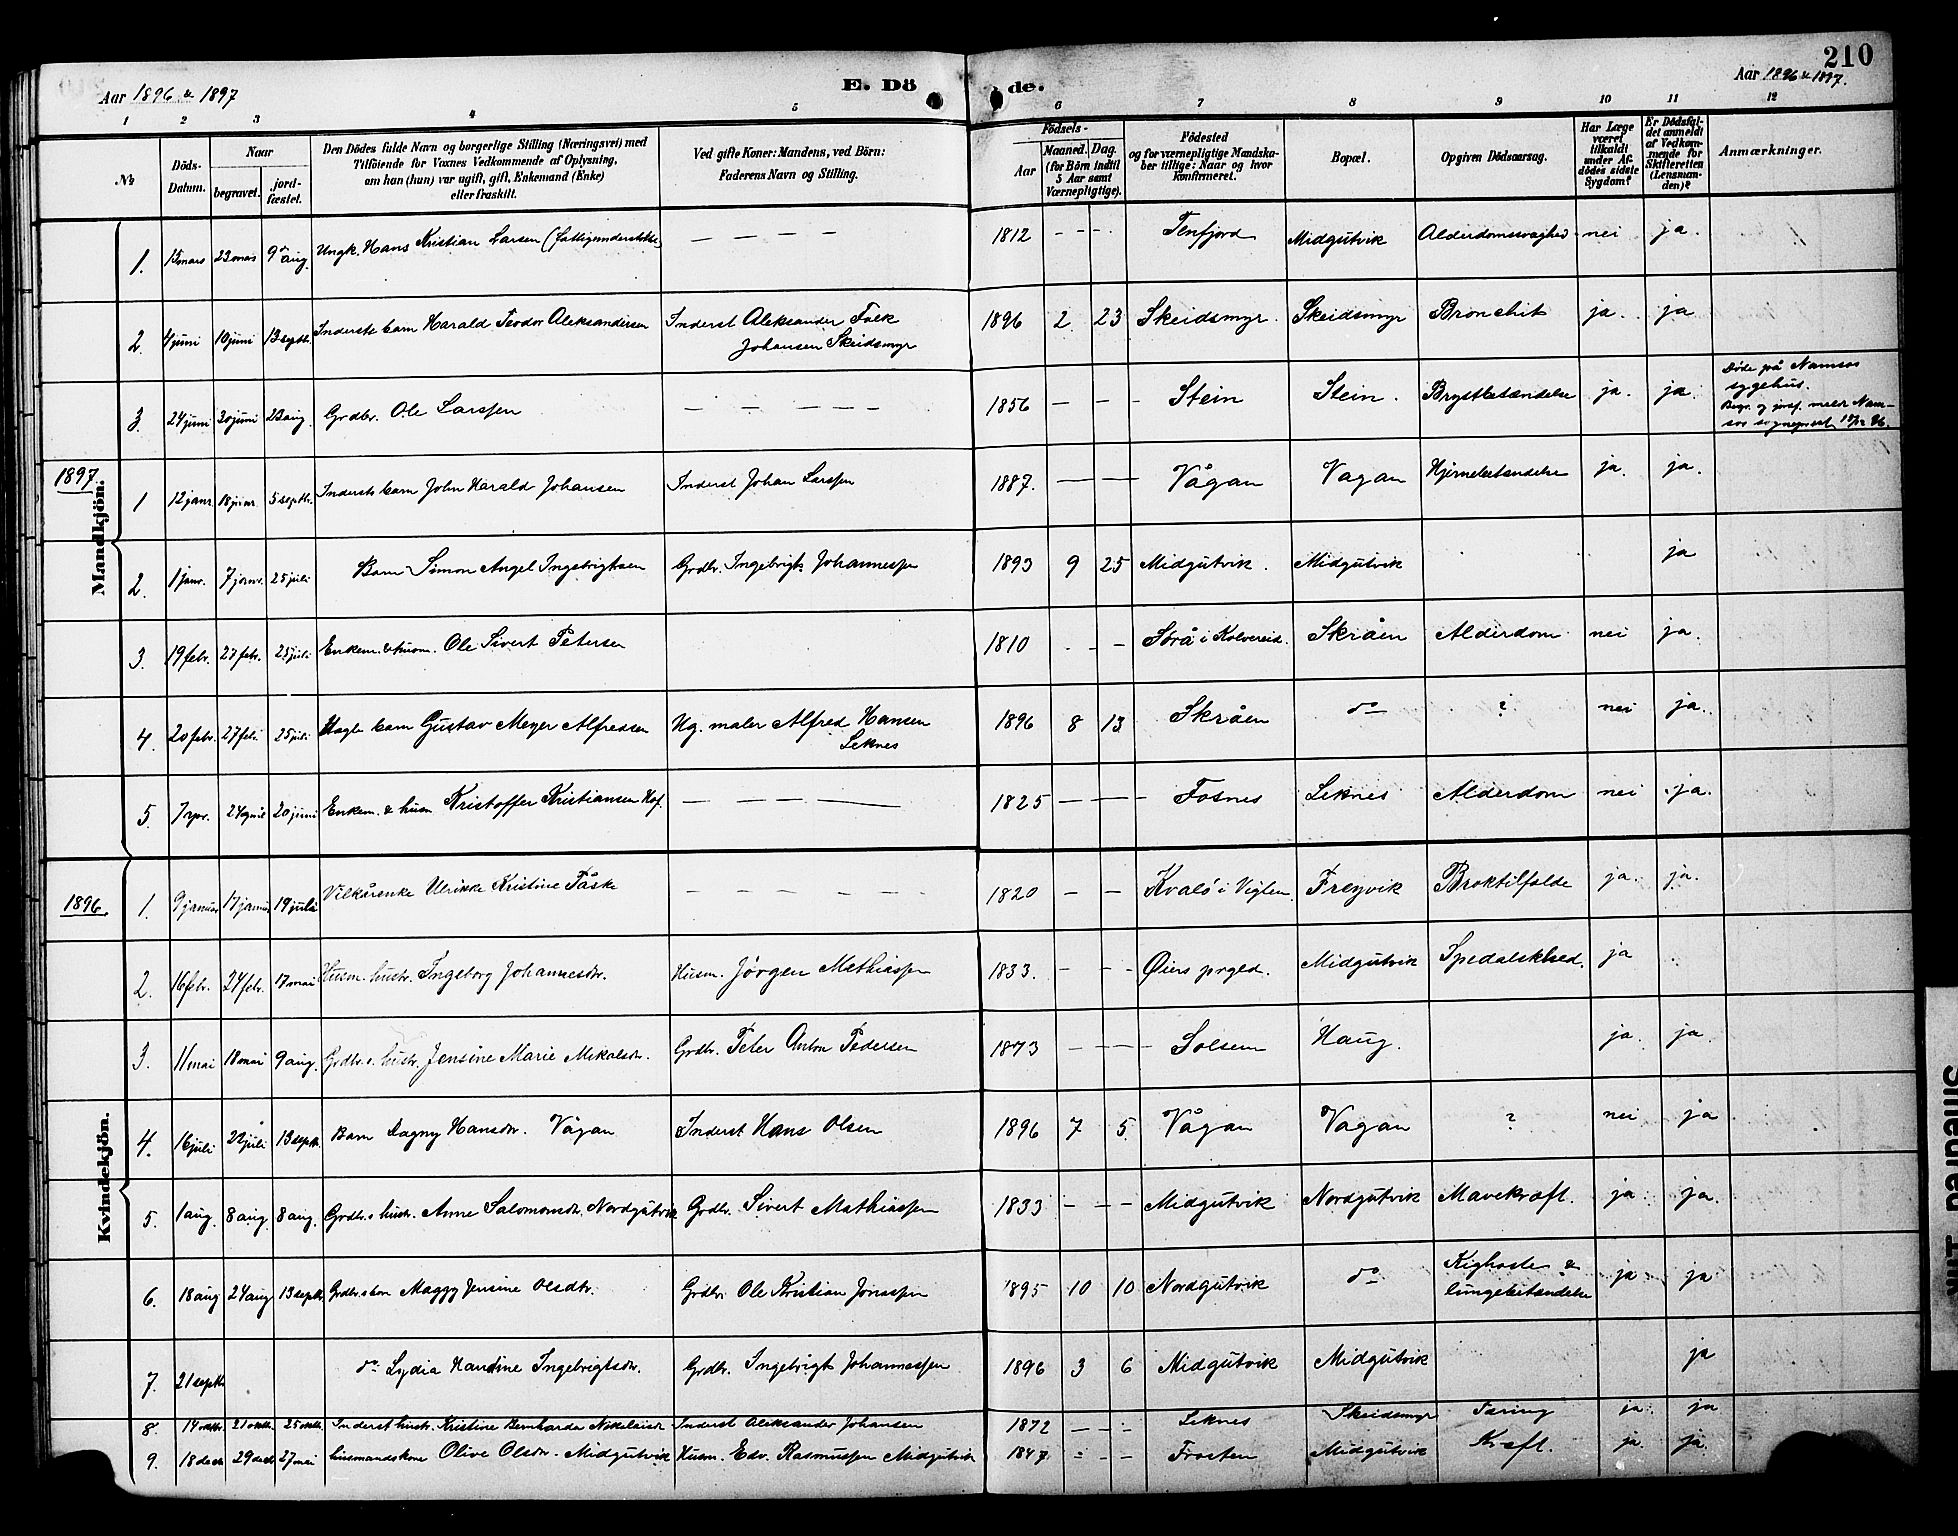 210
Aar 1896 & 1897 E. Dö de. Aar 1896 & 1897.
1 2 3 4 5 6 7 8 9 10 11 12
№ Döds-Datum. Naar begravet. jordfæstet. Den Dödes fulde Navn og borgerlige Stilling (Næringsvei) med Tilföiende for Voxnes Vedkommende af Oplysning, om han (hun) var ugift, gift, Enkemand (Enke) eller fraskilt. Ved gifte Koner: Mandens, ved Börn: Faderens Navn og Stilling. Födsels- Aar Maaned. Dag. (for Börn indtil 5 Aar samt Værnepligtige). Födested og for værnepligtige Mandskaber tillige: Naar og hvor konfirmeret. Bopæl. Opgiven Dödsaarsag. Har Læge været tilkaldt under Afdödes sidste Sygdom? Er Dödsfaldet anmeldt af Vedkommende for Skifteretten (Lensmanden)? Anmærkninger.
Mandkjön.
1. 13 mars 23 mars 9 aug. Ungk. Hans Kristian Larsen — — — — 1812 - - - Tenfjord Midgutvik Alderdomssvaghed nei ja.
2. 4 juni 10 juni 13 septb. Indersts barn Harald Teodor Aleksandersen Inderst Aleksander Falk 1896 2 23 Skeidsmyr. Skeidsmyr Bronchit ja. ja
Johansen Skeidsmyr
3. 24 juni 30 juni 23 aug. Grdbr. Ole Larssen — — — — — 1856 — — - Stein Stein. Brystbetændelse ja. ja. Døde på Namsos
sygehus.
1897
1 12 janr. 18 janr. 5 septb. Indersts barn John Harald Johansen Inderst Johan Larssen 1887. — — Vågan Vagan Hjernebetændelse ja. ja.
2. 1 janr. 7 janr. 25 juli Barn Simon Angel Ingebrigtsen Grdbr. Ingebrigt Johannessen 1893 9 25 Midgutvik. Midgutvik ja
3. 19 febr. 27 febr. 25 juli Enkem. & husm. Ole Sivert Petersen 1810 - - - Sørå i Kolvereid. Skråen Alderdom nei ja.
4. 20 febr. 27 feb 25 juli Uægte barn Gustav Meyer Alfredsen Ug. maler Alfred Hansen 1896 8 13 Skråen do ? nei ja.
Leknes
5. 7 apr. 24 april 20 juni Enkem. & husm Kristoffer Kristiansen Hof. — — — — 1825 — — - Fosnes Leknes Alderdom nei ja.
Kvindekjön.
1896.
1. 9 januar 17 januar 19 juli Vilkårenke Ulrikke Kristine Påske — — — — 1820 — — Kvalø i Vigten. Freyvik Broktilfælde ja. ja.
2. 16 febr. 24 febr. 17 mai Husm. hustr. Ingeborg Johannesdr. Husm. Jørgen Mathiassen 1833. - - - Øiers prgld. Midgutvik Spedalskhed. ja
3. 11 mai 18 mai 9 aug. Grdbr.s. hustr. Jensine Marie Mikalsdr. Grdbr. Peter Anton Pedersen 1873 — — — Solsem Haug. ja. ja
4. 16 juli 22 juli 13 septb. Barn Dagny Hansdr. Vågan Inderst Hans Olsen 1896 7 5. Vågan Vagan ? nei ja
5. 1 aug. 8 aug. 8 aug. Grdbr.s hustr. Anne Salomonsdr. Nordgutvik Grdbr. Sivert Mathiassen 1833 — - - Midgutvik Nordgutvik Mavekræft. ja ja.
6. 18 aug 24 aug 13 septb. Grdbr.s barn Maggy Jensine Olsdtr. Grdbr. Ole Kristian Jonassen 1895 10 10 Nordgutvik do Kighoste & ja ja
lungebetændelse
7. 21 septb. do Lydia Haudine Ingebrigtsdr. Grdbr. Ingebrigt Johannessen 1896 3 6 Midgutvik Midgutvik ja
8. 14 oktb. 21 oktb. 25 oktb. Inderst hustr. Kristine Bernharda Nikolaisdr Inderst Aleksander Johansen 1872 — - - Leknes Skeidsmyr Tæring ja. ja
9. 18 decb 29 decb 27 mai husmandskone Olive Olsdr. Midgutvik Husm. Edv. Rasmussen Midgutvik 1847. - - - Frosten Midgutvik Kræft. ja. ja.